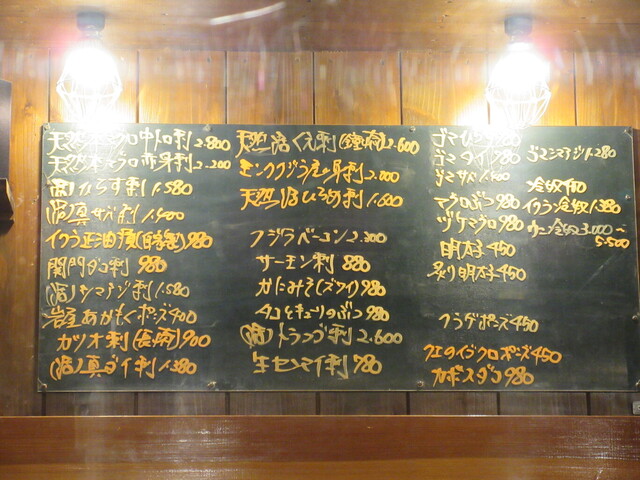 天然本マグロ中トロ刺 2.800
天然本マグロ赤身刺 2.200
ひらす刺 1.580
(活)真サバ刺 1.400
イクラ正油漬(自家製) 980
関門ダコ刺 980
(活)シマアジ刺 1.580
岩屋あかもくポン酢 400
カツオ刺(長崎) 900
(活)真ダイ刺 1.380
天然活くえ刺 2.600
ミンククジラ赤身刺 2.000
天然活ひらめ刺 1.600
クジラベーコン 2.300
サーモン刺 880
かにみそ(ズワイ) 980
タコときゅうりのぶつ 980
(活)トラフグ刺 2.600
生センマイ刺 780
ゴマひらす 980
ゴマタイ 980
ゴマサバ 1.400
マグロぶつ 980
ヅケマグロ 980
明太子 450
炙り明太子 450
クラゲポンズ 450
クエのイブクロポンズ 450
カボスダコ 980
ゴマシマアジ 1.280
冷奴
イクラ冷奴 1.380
ウニ冷奴 3.000~
5.500